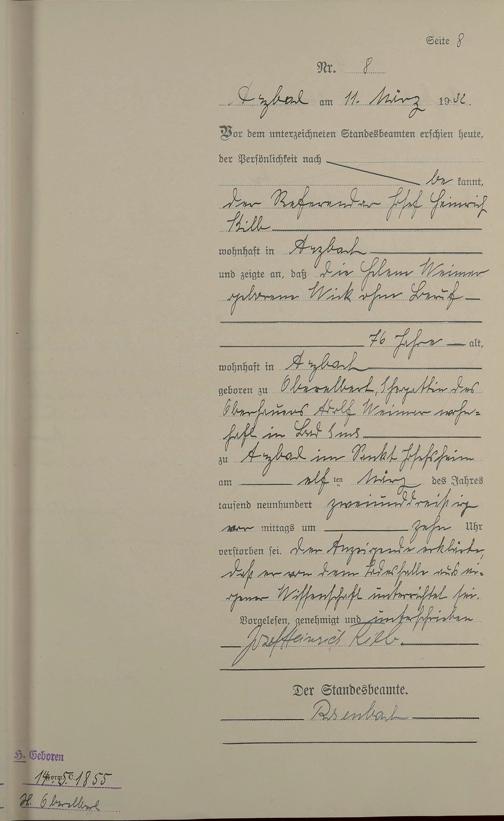 Seite 8
Nr. 8
Arzbach am 11. März 1932.
Vor dem unterzeichneten Standesbeamten erschien heute,
der Persönlichkeit nach
be kannt,
der Referendar Josef Heinrich
Kilb
wohnhaft in Arzbach
und zeigte an, daß die Helene Weimer
geborene Wick ohne Beruf
76 Jahre alt,
wohnhaft in Arzbach
geboren zu Oberelbert, Ehegattin des
Oberhauers Adolf Weimer wohn-
haft in Bad Ems
zu Arzbach im Sankt Josefsheim
am elf ten März des Jahres
tausend neunhundert zweiunddreißig
vor mittags um zehn Uhr
verstorben sei. Der Anzeigende erklärte,
daß er von dem Todesfalle aus ei-
gener Wissenschaft unterrichtet sei.
Vorgelesen, genehmigt und unterschrieben
Josef Heinrich Kilb.
Der Standesbeamte.
H. Geboren
1855
St. Oberelbert